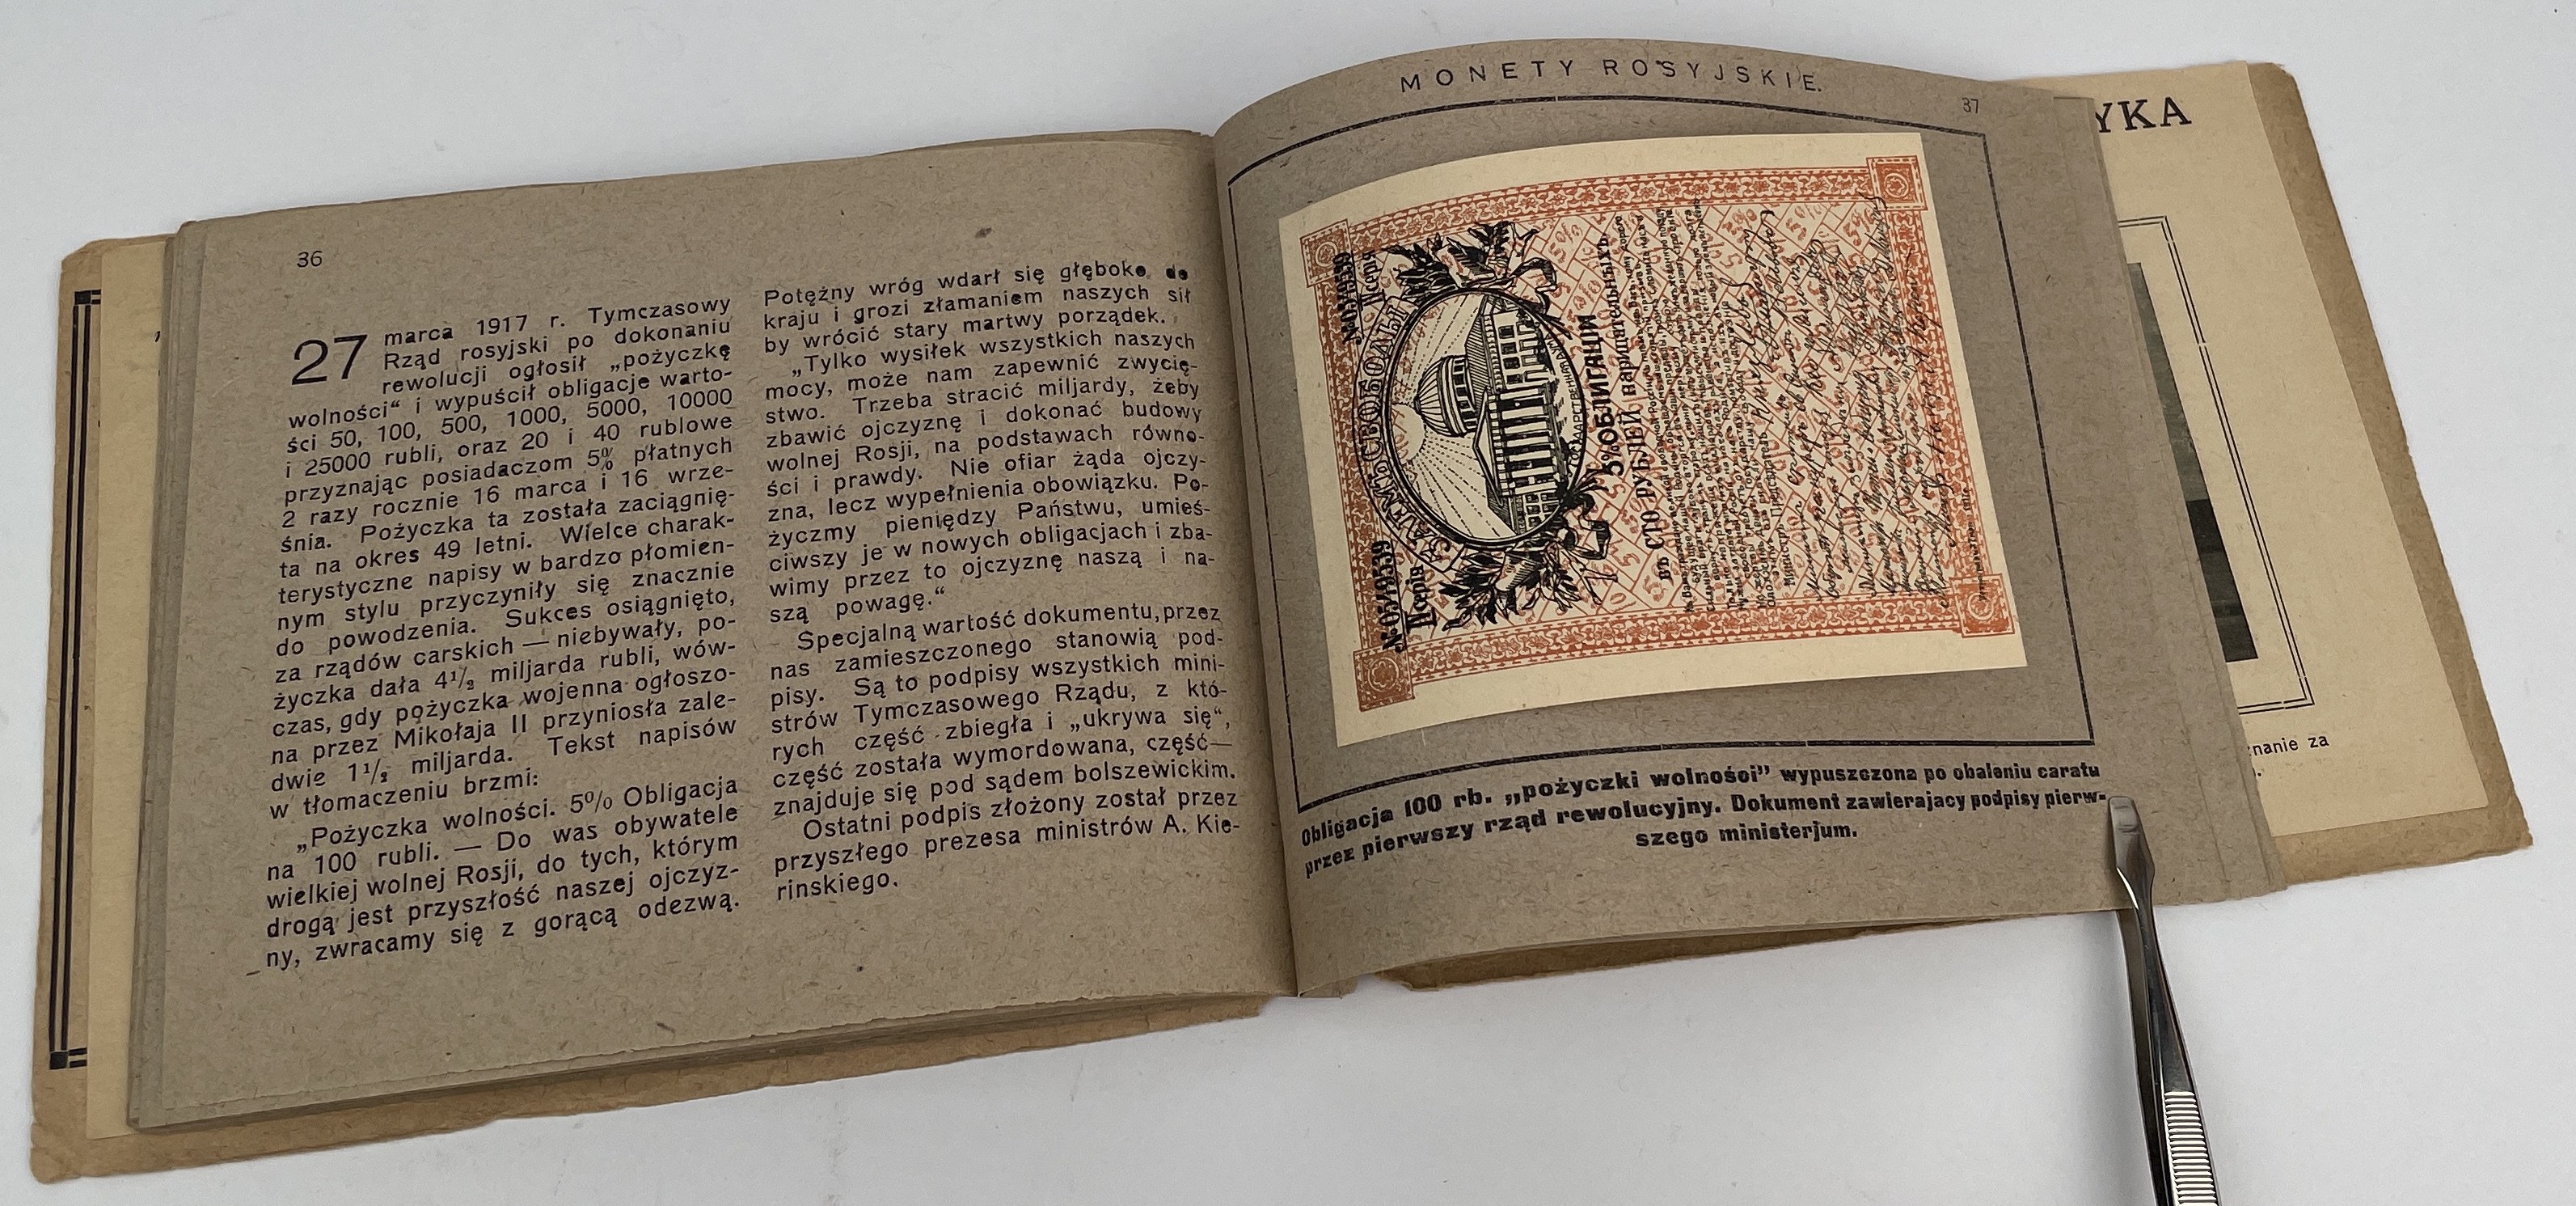 36
27 marca 1917 r. Tymczasowy
Rząd rosyjski po dokonaniu
rewolucji ogłosił „pożyczkę
wolności“ i wypuścił obligacje warto-
ści 50, 100, 500, 1000, 5000, 10000
i 25000 rubli, oraz 20 i 40 rublowe
przyznając posiadaczom 5% płatnych
2 razy rocznie 16 marca i 16 wrze-
śnia. Pożyczka ta została zaciągnię-
ta na okres 49 letni. Wielce charak-
terystyczne napisy w bardzo płomien-
nym stylu przyczyniły się znacznie
do powodzenia. Sukces osiągnięto,
za rządów carskich — niebywały, po-
życzka dała 4½ miljarda rubli, wów-
czas, gdy pożyczka wojenna ogłoszo-
na przez Mikołaja II przyniosła zale-
dwie 1½ miljarda. Tekst napisów
w tłomaczeniu brzmi:
„Pożyczka wolności. 5% Obligacja
na 100 rubli. — Do was obywatele
wielkiej wolnej Rosji, do tych, którym
drogą jest przyszłość naszej ojczyz-
ny, zwracamy się z gorącą odezwą.
Potężny wróg wdarł się głęboko do
kraju i grozi złamaniem naszych sił
by wrócić stary martwy porządek.
„Tylko wysiłek wszystkich naszych
mocy, może nam zapewnić zwycię-
stwo. Trzeba stracić miljardy, żeby
zbawić ojczyznę i dokonać budowy
wolnej Rosji, na podstawach równo-
ści i prawdy. Nie ofiar żąda ojczy-
zna, lecz wypełnienia obowiązku. Po-
życzmy pieniędzy Państwu, umieś-
ciwszy je w nowych obligacjach i zba-
wimy przez to ojczyznę naszą i na-
szą powagę.“
Specjalną wartość dokumentu, przez
nas zamieszczonego stanowią pod-
pisy. Są to podpisy wszystkich mini-
strów Tymczasowego Rządu, z któ-
rych część zbiegła i „ukrywa się“,
część została wymordowana, część—
znajduje się pod sądem bolszewickim.
Ostatni podpis złożony został przez
przyszłego prezesa ministrów A. Kie-
rinskiego.
MONETY ROSYJSKIE.
37
№ 0579539 № 0579539
II серія II серія
ЗАЕМЪ СВОБОДЫ
ГОСУДАРСТВЕННАЯ ДУМА
5% ОБЛИГАЦІЯ
въ СТО РУБЛЕЙ нарицательныхъ.
Obligacja 100 rb. „pożyczki wolności” wypuszczona po obaleniu caratu
przez pierwszy rząd rewolucyjny. Dokument zawierajacy podpisy pierw-
szego ministerjum.
YKA
nanie za